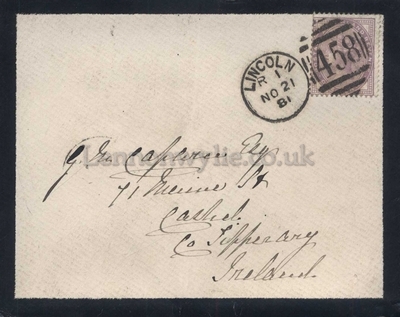 LINCOLN
R 1
NO 21
81
458
Lennonwylie.co.uk
Esq
71 St
Cashel
Co Tipperary
Ireland